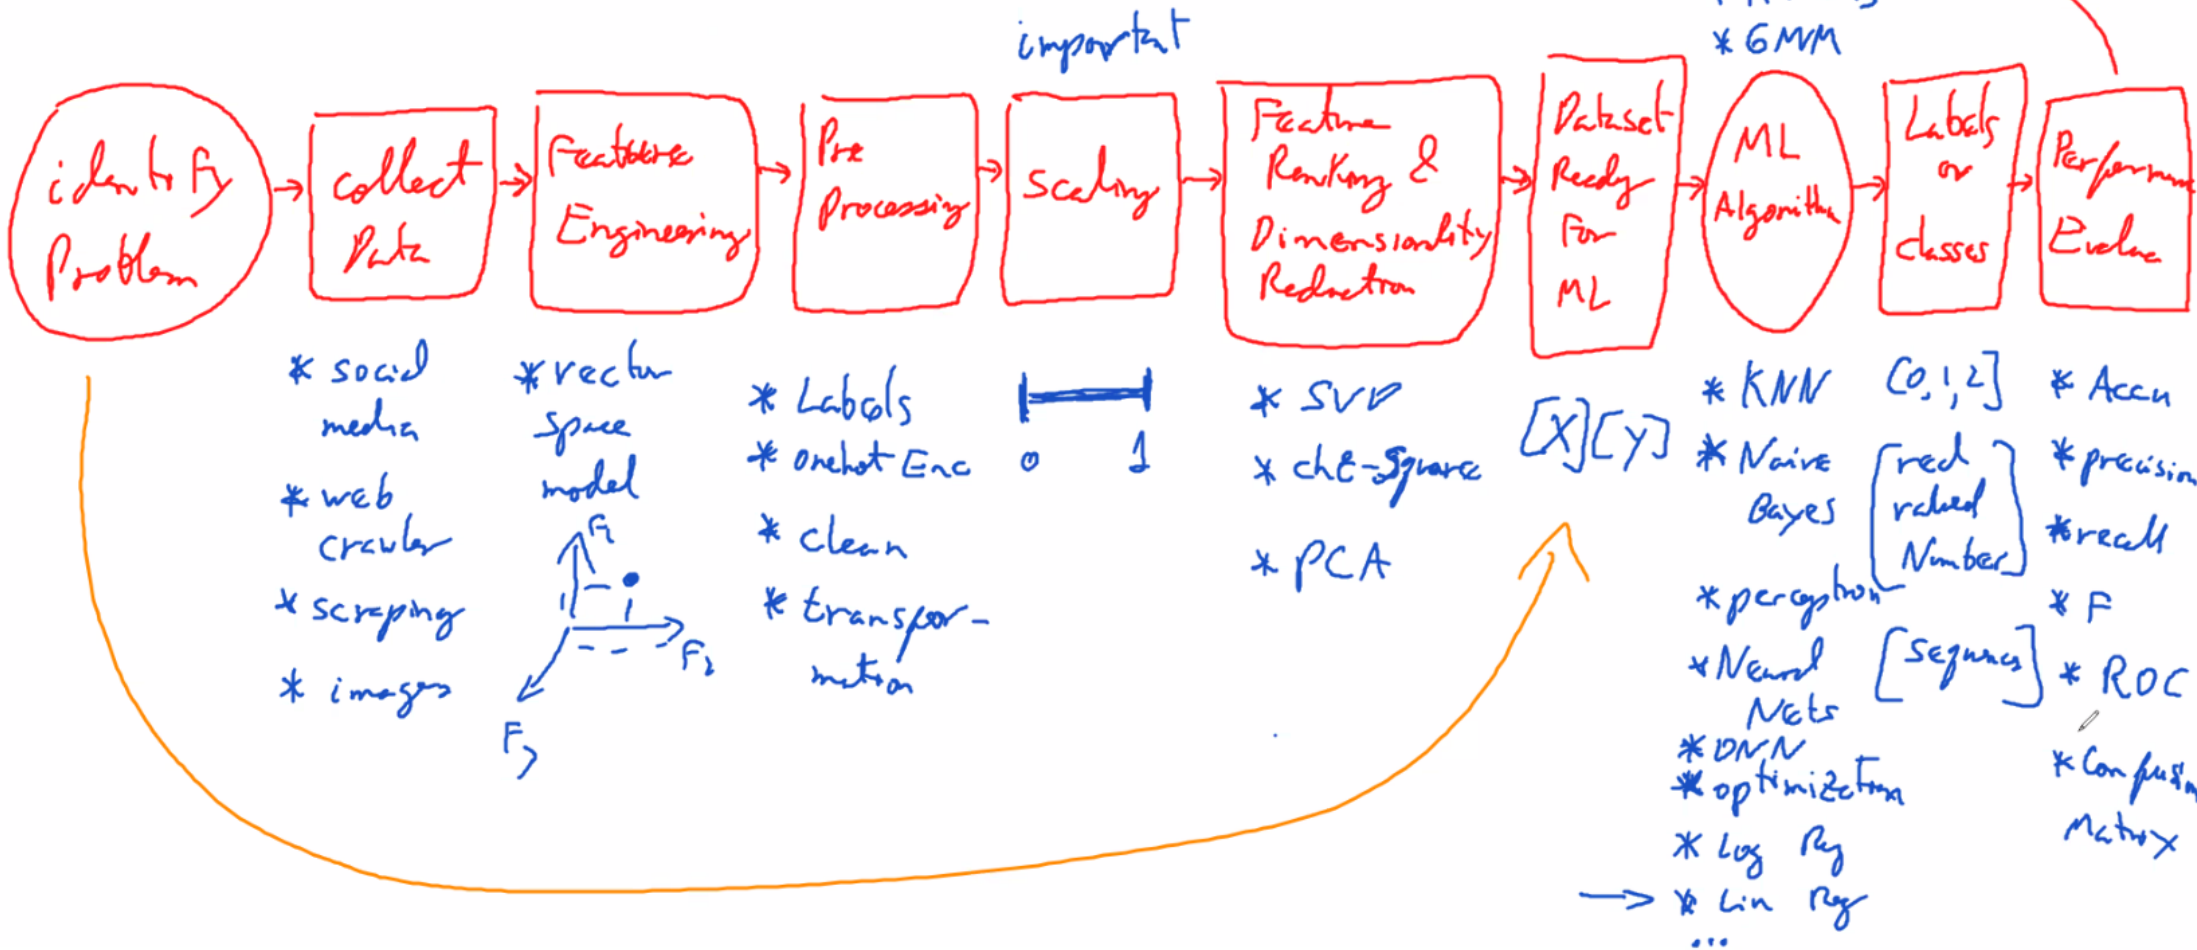 important
* GMM
identify
Problem
collect
Data
Feature
Engineering
Pre
Processing
Scaling
Feature
Ranking &
Dimensionality
Reduction
Dataset
Ready
For
ML
ML
Algorithm
Labels
or
classes
Perform
Evalua
* social
media
* web
crawler
* scraping
* images
* vector
space
model
F1
F2
F3
* Labels
* onehot Enc
* clean
* transfor-
mation
0 1
* SVD
* chi-square
* PCA
[X][y]
* KNN
* Naive
Bayes
* perceptron
* Neural
Nets
* DNN
* optimization
* Log Reg
* Lin Reg
...
[0,1,2]
real
valued
Number
[sequences]
* Accu
* precision
* recall
* F
* ROC
* Confusion
Matrix